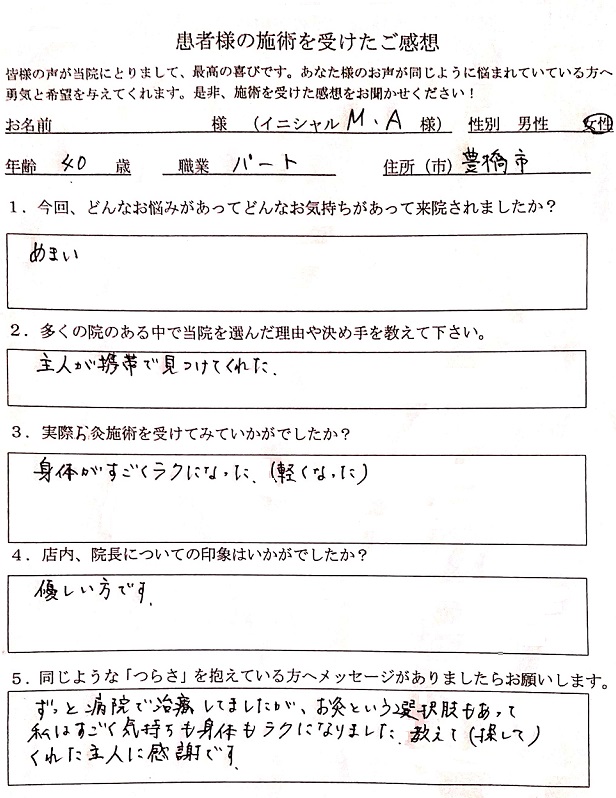 患者様の施術を受けたご感想
皆様の声が当院にとりまして、最高の喜びです。あなた様のお声が同じように悩まれていている方へ
勇気と希望を与えてくれます。是非、施術を受けた感想をお聞かせください！
お名前 様 （イニシャル M・A 様） 性別 男性 女性
年齢 40 歳 職業 パート 住所（市）豊橋市
１．今回、どんなお悩みがあってどんなお気持ちがあって来院されましたか？
めまい
２．多くの院のある中で当院を選んだ理由や決め手を教えて下さい。
主人が携帯で見つけてくれた。
３．実際お灸施術を受けてみていかがでしたか？
身体がすごくラクになった。（軽くなった）
４．店内、院長についての印象はいかがでしたか？
優しい方です。
５．同じような「つらさ」を抱えている方へメッセージがありましたらお願いします。
ずっと病院で治療してましたが、お灸という選択肢もあって
私はすごく気持ちも身体もラクになりました。教えて（探して）
くれた主人に感謝です。